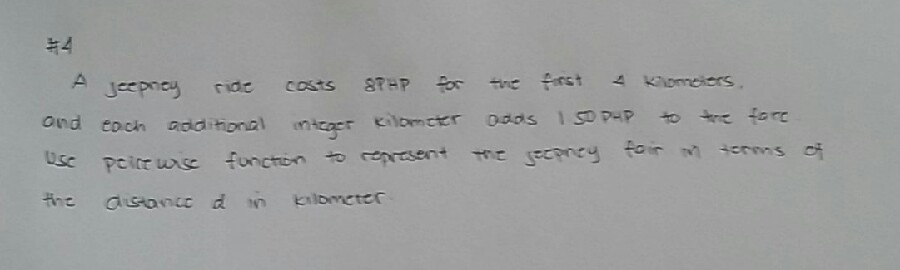 #4
A jeepney ride costs 8PHP for the first 4 kilometers,
and each additional integer kilometer adds 1.50 PHP to the fare.
Use peicewise function to represent the jeepney fair in terms of
the distance d in kilometer.